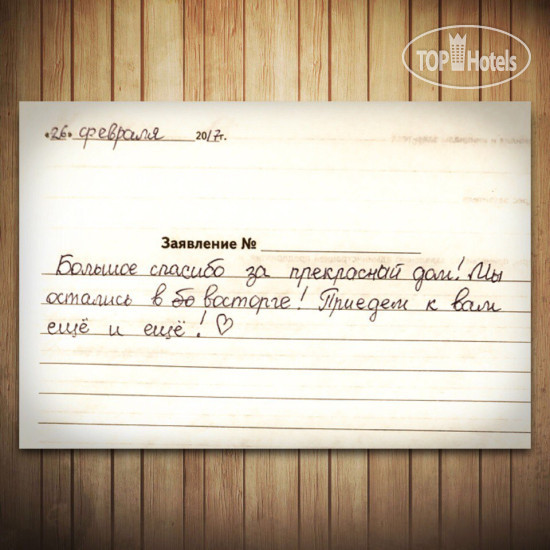 TOP Hotels
«26» февраля 2017г.
Заявление №
Большое спасибо за прекрасный дом! Мы
остались в во восторге! Приедем к вам
ещё и ещё! ♡